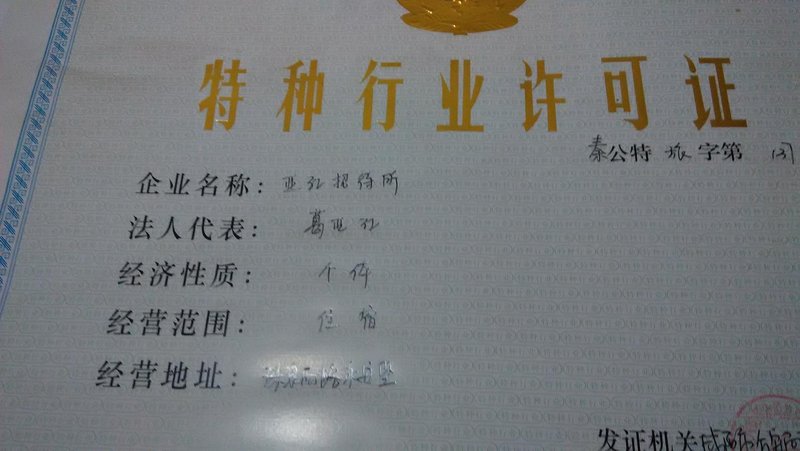 特种行业许可证
秦公特 旅 字第
企业名称：亚红招待所
法人代表：葛亚红
经济性质：个体
经营范围：住宿
经营地址：
发证机关